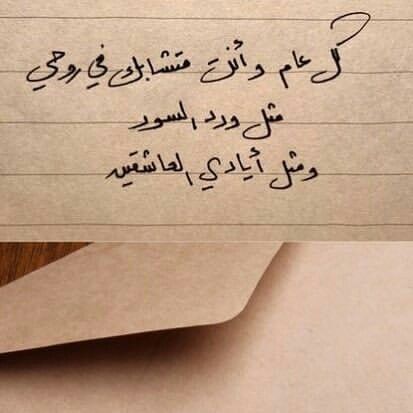 كل عام و أنت متشابك في روحي
مثل ورد السور
ومثل أيادي العاشقين